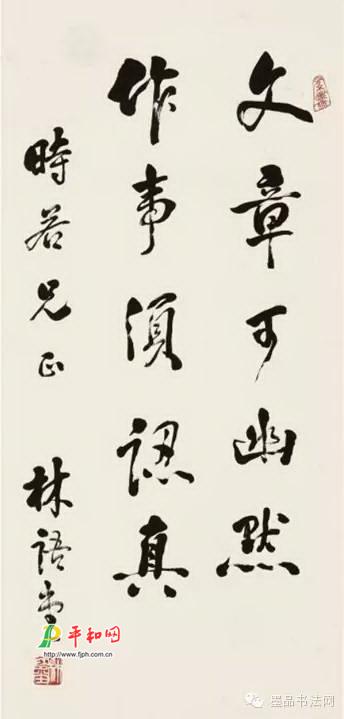 文章可幽默
作事須認真
時若兄正
林語堂
平和网
http://www.fjph.com.cn
墨品书法网